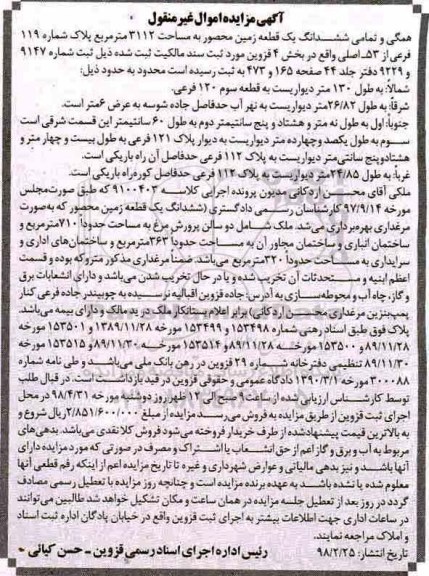 آگهی مزایده اموال غیر منقول
همگی و تمامی ششدانگ یک قطعه زمین محصور به مساحت ۳۱۱۲ مترمربع پلاک شماره ۱۱۹
فرعی از ۵۳ـ اصلی واقع در بخش ۴ قزوین مورد ثبت سند مالکیت ثبت شده ذیل ثبت شماره ۹۱۴۷
و ۹۲۲۹ دفتر جلد ۴۴ صفحه ۱۶۵ و ۴۷۳ به ثبت رسیده است محدود به حدود ذیل:
شمالاً: به طول ۱۳۰ متر دیواریست به قطعه سوم ۱۲۰ فرعی.
شرقاً: به طول ۲۶/۸۲متر دیواریست به نهر آب حدفاصل جاده شوسه به عرض ۶متر است.
جنوباً: اول به طول نه متر و هشتاد و پنج سانتیمتر دوم به طول ۶۰ سانتیمتر این قسمت شرقی است
سوم به طول یکصد وچهارده متر دیواریست به دیوار پلاک ۱۲۱ فرعی به طول بیست و چهار متر و
هشتادوپنج سانتی‌متر دیواریست به پلاک ۱۱۲ فرعی حدفاصل آن راه باریکی است.
غرباً: به طول ۲۴/۸۵ متر دیواریست به پلاک ۱۱۲ فرعی حدفاصل کوره‌راه باریکی است.
ملکی آقای محسن اردکانی مدیون پرونده اجرایی کلاسه ۹۱۰۰۴۰۳ که طبق صورت‌مجلس
مورخه ۹۷/۹/۱۴ کارشناسان رسمی دادگستری (ششدانگ یک قطعه زمین محصور که به‌صورت
مرغداری بهره‌برداری می‌شد. ملک شامل دو سالن پرورش مرغ به مساحت حدوداً ۷۱۰مترمربع و
ساختمان انباری و ساختمان مجاور آن به مساحت حدوداً ۳۶۳مترمربع و ساختمان‌های اداری و
سرایداری به مساحت حدوداً ۳۲۰مترمربع می‌باشد. ضمناً مرغداری مذکور متروکه بوده و قسمت
اعظم ابنیه و مستحدثات آن تخریب شده و یا در حال تخریب شدن می‌باشد و دارای انشعابات برق
و گاز، چاه آب و محوطه‌سازی به آدرس: جاده قزوین اقبالیه نرسیده به چوبیندر جاده فرعی کنار
پمپ‌بنزین مرغداری محسن اردکانی) برابر اعلام بستانکار ملک در ید مالک و دارای بیمه می‌باشد.
پلاک فوق طبق اسناد رهنی شماره ۱۵۳۴۹۸ و ۱۵۳۴۹۹ مورخه ۱۳۸۹/۱۱/۲۸ و ۱۵۳۵۰۱ مورخه
۸۹/۱۱/۲۸ و ۱۵۳۵۰۰ مورخه ۸۹/۱۱/۲۸و ۱۵۳۵۱۴ مورخه ۸۹/۱۱/۳۰و ۱۵۳۵۱۵ مورخه
۸۹/۱۱/۳۰ تنظیمی دفترخانه شماره ۲۹ قزوین در رهن بانک ملی می‌باشد و طی نامه شماره
۳۰۰۰۸۸ مورخه ۱۳۹۰/۳/۱ دادگاه عمومی و حقوقی قزوین در قید بازداشت است. در قبال طلب
توسط کارشناس ارزیابی شده از ساعت ۹ صبح الی ۱۲ ظهر روز دوشنبه مورخه ۹۸/۴/۳۱ در محل
اجرای ثبت قزوین از طریق مزایده به فروش می‌رسد مزایده از مبلغ ۲/۸۵۱/۶۰۰/۰۰۰ ریال شروع و
به بالاترین قیمت پیشنهادشده از طرف خریدار فروخته می‌شود فروش کلا نقدی می‌باشد. بدهی‌های
مربوط به آب و برق و گاز اعم از حق انشعاب یا اشتراک و مصرف در صورتی که مورد مزایده دارای
آنها باشد و نیز بدهی مالیاتی و عوارض شهرداری و غیره تا تاریخ مزایده اعم از اینکه رقم قطعی آنها
معلوم شده یا نشده باشد به عهده برنده مزایده است و چنانچه روز مزایده با تعطیل رسمی مصادف
گردد در روز بعد از تعطیل جلسه مزایده در همان ساعت و مکان تشکیل خواهد شد طالبین می‌توانند
در ساعات اداری جهت اطلاعات بیشتر به اجرای ثبت قزوین واقع در خیابان پادگان اداره ثبت اسناد
و املاک مراجعه نمایند.
تاریخ انتشار: ۹۸/۲/۲۵
رئیس اداره اجرای اسناد رسمی قزوین ـ حسن کیائی